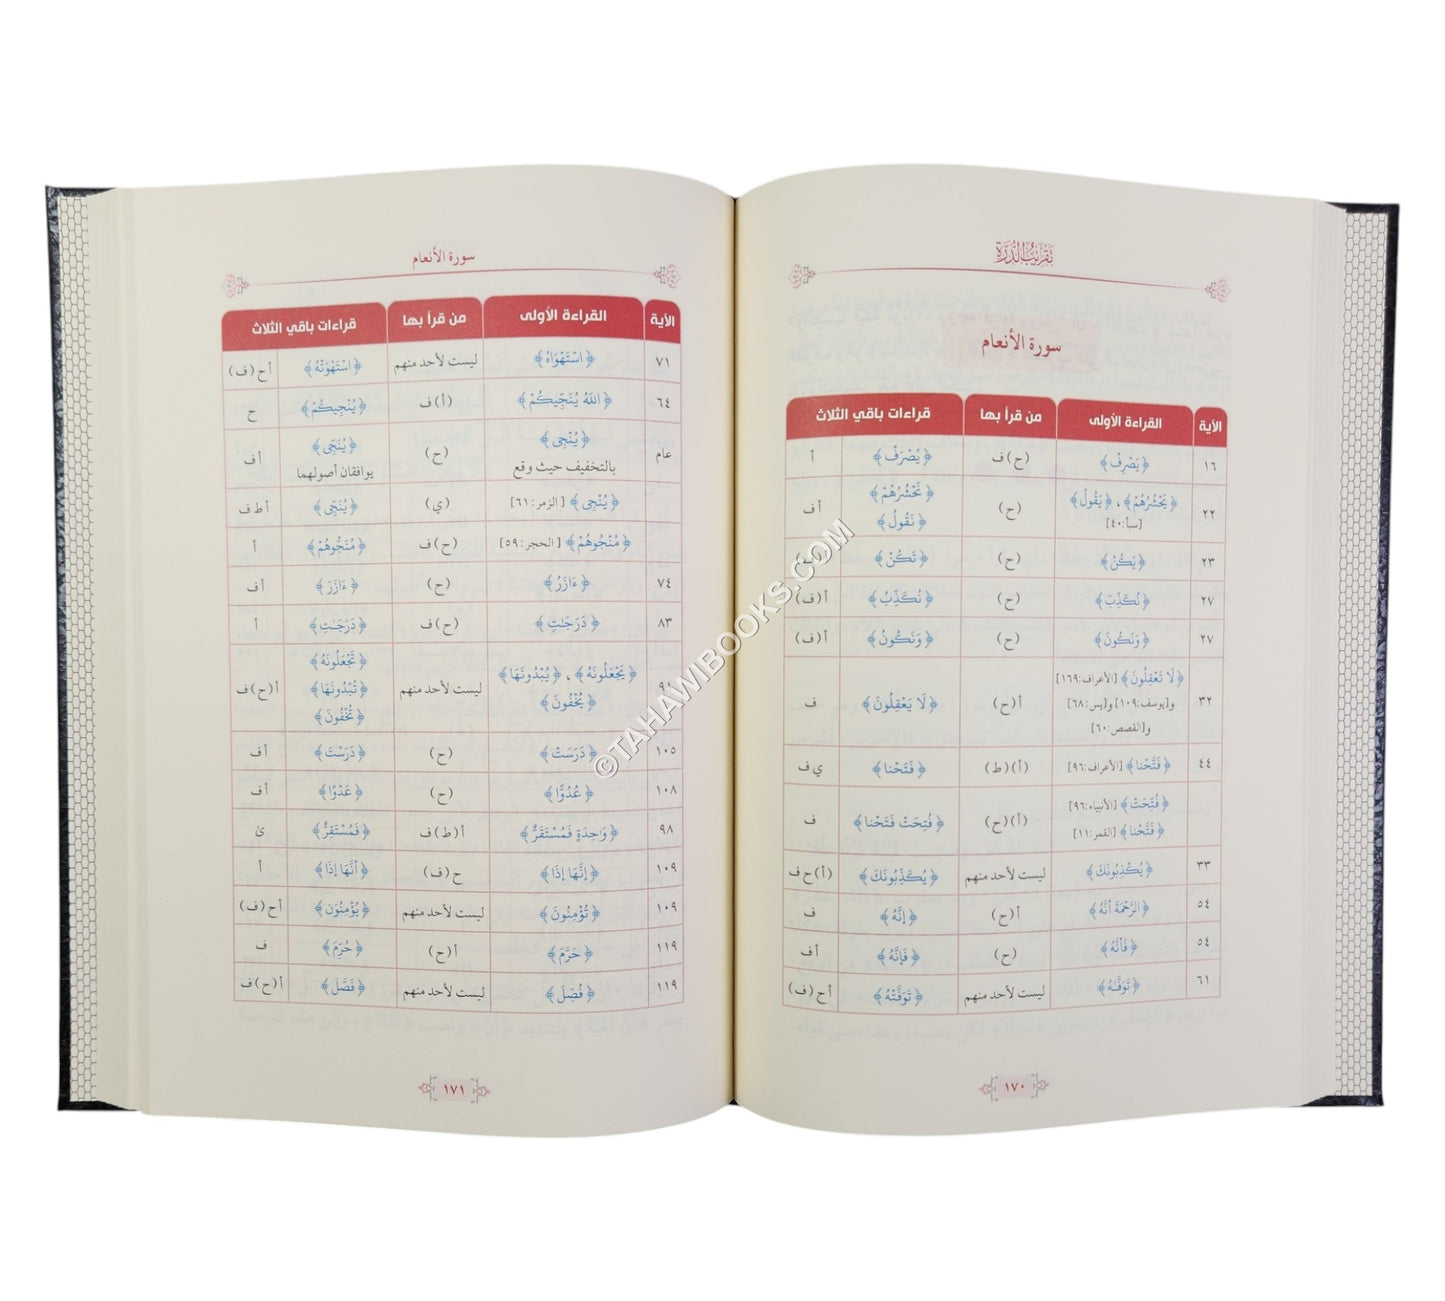 تقريب الدرة
سورة الأنعام
الآية القراءة الأولى من قرأ بها قراءات باقي الثلاث
١٦ ﴿يَصْرِفْ﴾ (ح) ف ﴿يُصْرَفْ﴾ أ
٢٢ ﴿يَحْشُرُهُمْ﴾، ﴿يَقُولُ﴾ [سبأ: ٤٠] (ح) ﴿نَحْشُرُهُمْ﴾ ﴿نَقُولُ﴾ أ ف
٢٣ ﴿يَكُنْ﴾ (ح) ﴿تَكُنْ﴾
٢٧ ﴿نُكَذِّبَ﴾ (ح) ﴿نُكَذِّبُ﴾ أ (ف)
٢٧ ﴿وَنَكُونَ﴾ (ح) ﴿وَنَكُونُ﴾ أ (ف)
٣٢ ﴿لَا تَعْقِلُونَ﴾ [الأعراف: ١٦٩] و[يوسف: ١٠٩] و[يس: ٦٨] و[القصص: ٦٠] أ (ح) ﴿لَا يَعْقِلُونَ﴾ ف
٤٤ ﴿فَتَّحْنا﴾ [الأعراف: ٩٦] (أ) (ط) ﴿فَتَحْنا﴾ ي ف
﴿فُتِّحَتْ﴾ [الأنبياء: ٩٦] ﴿فَتَّحْنا﴾ [القمر: ١١] (أ) (ح) ﴿فُتِحَتْ فَتَحْنا﴾ ف
٣٣ ﴿يُكْذِبُونَكَ﴾ ليست لأحد منهم ﴿يُكَذِّبُونَكَ﴾ (أ) ح ف
٥٤ ﴿الرَّحْمَةَ أَنَّهُ﴾ أ (ح) ﴿إِنَّهُ﴾ ف
٥٤ ﴿فَأَنَّهُ﴾ (ح) ﴿فَإِنَّهُ﴾ أ ف
٦١ ﴿تَوَفَّىٰهُ﴾ ليست لأحد منهم ﴿تَوَفَّتْهُ﴾ أ ح (ف)
١٧٠
سورة الأنعام
الآية القراءة الأولى من قرأ بها قراءات باقي الثلاث
٧١ ﴿اسْتَهْوَاهُ﴾ ليست لأحد منهم ﴿اسْتَهْوَتْهُ﴾ أ ح (ف)
٦٤ ﴿اللَّهُ يُنَجِّيكُمْ﴾ (أ) ف ﴿يُنْجِيكُمْ﴾ ح
عام ﴿يُنْجِى﴾ بالتخفيف حيث وقع (ح) ﴿يُنَجِّى﴾ يوافقان أصولهما أ ف
﴿يُنْجِى﴾ [الزمر: ٦١] (ي) ﴿يُنَجِّى﴾ أ ط ف
﴿مُنْجُوهُمْ﴾ [الحجر: ٥٩] (ح) ف ﴿مُنَجُّوهُمْ﴾ أ
٧٤ ﴿ءَازَرُ﴾ (ح) ﴿ءَازَرَ﴾ أ ف
٨٣ ﴿دَرَجَٰتٍ﴾ (ح) ف ﴿دَرَجَٰتِ﴾ أ
٩١ ﴿يَجْعَلُونَهُ﴾، ﴿يُبْدُونَهَا﴾ ﴿يُخْفُونَ﴾ ليست لأحد منهم ﴿تَجْعَلُونَهُ﴾ ﴿تُبْدُونَهَا﴾ ﴿تُخْفُونَ﴾ أ (ح) ف
١٠٥ ﴿دَرَسَتْ﴾ (ح) ﴿دَرَسْتَ﴾ أ ف
١٠٨ ﴿عُدُوًّا﴾ (ح) ﴿عَدْوًا﴾ أ ف
٩٨ ﴿وَاحِدَةٍ فَمُسْتَقَرٌّ﴾ أ (ط) ف ﴿فَمُسْتَقِرٌّ﴾ ى
١٠٩ ﴿إِنَّهَا إِذَا﴾ ح (ف) ﴿أَنَّهَا إِذَا﴾ أ
١٠٩ ﴿تُؤْمِنُونَ﴾ ليست لأحد منهم ﴿يُؤْمِنُونَ﴾ أ ح (ف)
١١٩ ﴿حَرَّمَ﴾ أ (ح) ﴿حُرِّمَ﴾ ف
١١٩ ﴿فُصِّلَ﴾ ليست لأحد منهم ﴿فَصَّلَ﴾ أ (ح) ف
١٧١
©TAHAWIBOOKS.COM